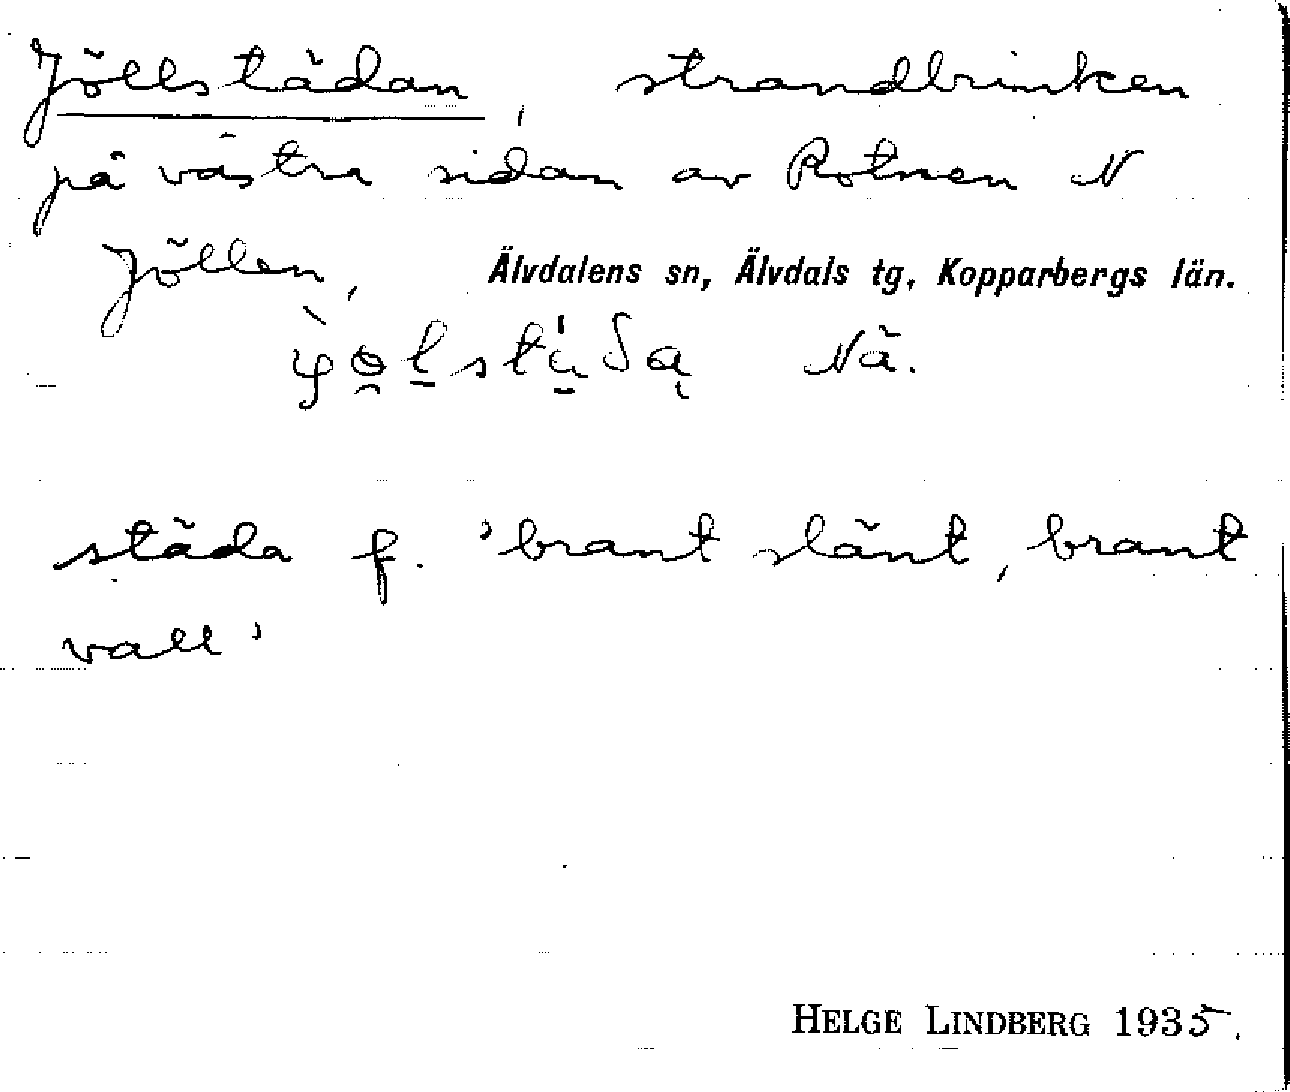 Jöllstädan, strandbrinken
på västra sidan av Rotnen N
Jöllen, Älvdalens sn, Älvdals tg, Kopparbergs län.
Nä.
städa f. 'brant slänt, brant
vall'
HELGE LINDBERG 1935.